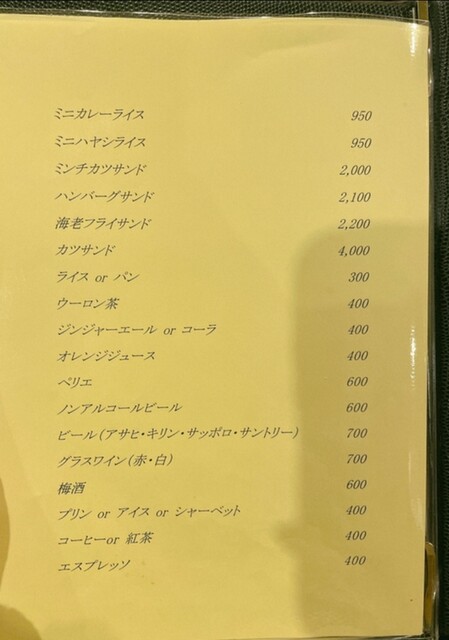 ミニカレーライス 950
ミニハヤシライス 950
ミンチカツサンド 2,000
ハンバーグサンド 2,100
海老フライサンド 2,200
カツサンド 4,000
ライス or パン 300
ウーロン茶 400
ジンジャーエール or コーラ 400
オレンジジュース 400
ペリエ 600
ノンアルコールビール 600
ビール(アサヒ・キリン・サッポロ・サントリー) 700
グラスワイン(赤・白) 700
梅酒 600
プリン or アイス or シャーベット 400
コーヒーor 紅茶 400
エスプレッソ 400